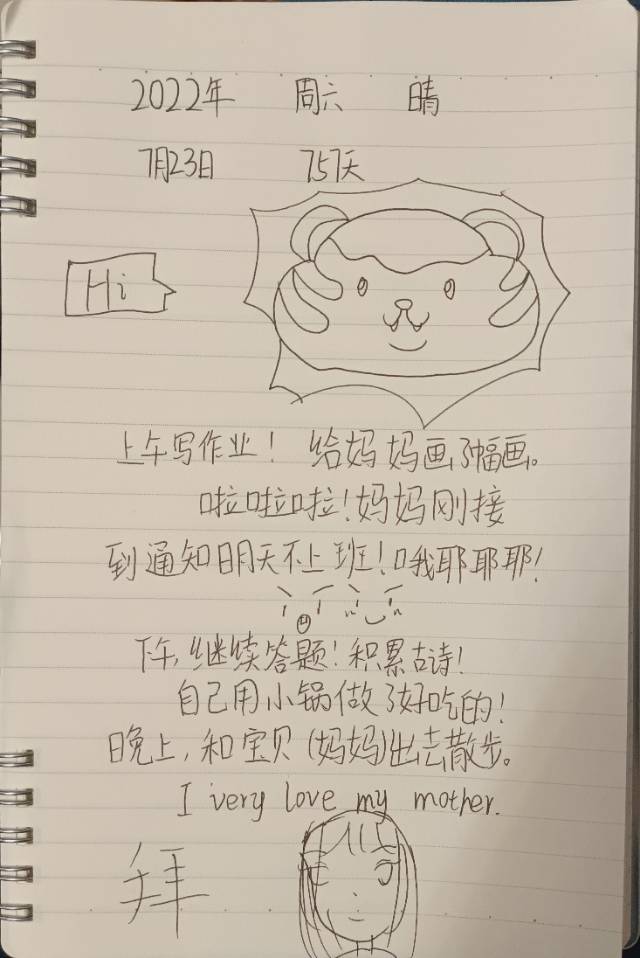 2022年 周六 晴
7月23日 757天
Hi
上午写作业! 给妈妈画了幅画。
啦啦啦!妈妈刚接
到通知明天不上班!哦耶耶耶!
下午,继续答题!积累古诗!
自己用小锅做了好吃的!
晚上,和宝贝(妈妈)出去散步。
I very love my mother.
拜